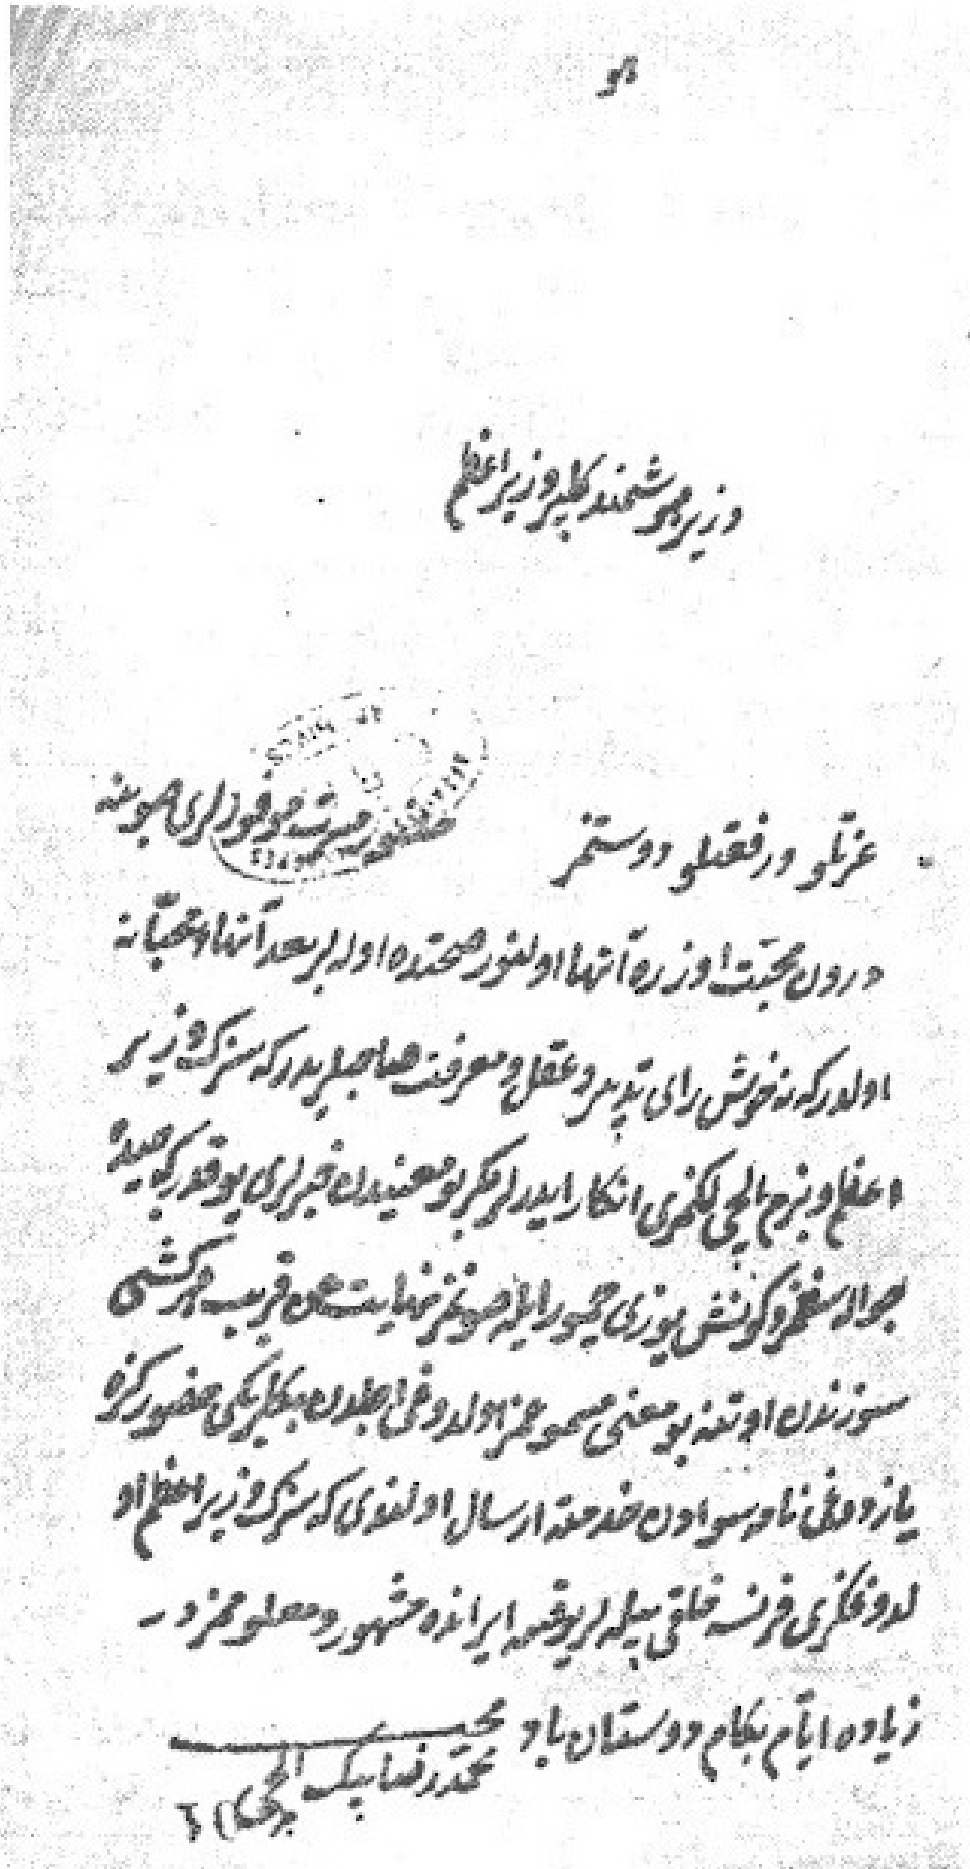 هو
وزیر هوشمند وزیر اعظم
عزتلو و رفعتلو دوستمز حضور مسرت موفورلری صوبنه
درون محبت اوزره آنها اولنور صحتده اوله لر بعد آنها محبانه
اولدر که نه خوش رای تدبیر و عقل و معرفت صاحبلریدر که سزک وزیر
اعظم و بزم ایلچی لکمزی انکار ایدرلر مکر بو معنیدن خبرلری یوقدر که
جواله سغمز و کونش یوزی چمور ایله صونمز نهایت عن قریب
سوزندن اوتنه بو معنی مسموعمز اولدوغی اجلدن بکلربکی حضورکزه
یازدوغی نامه سوادن خدمته ارسال اولندی که سزک وزیر اعظم او
لدوغکزی فرنسه خلقی بیله لر ایرانده مشهور و معلوممزدر
زیاده ایام بکام دوستان باد محب
محمد رضا بیک ایلچی